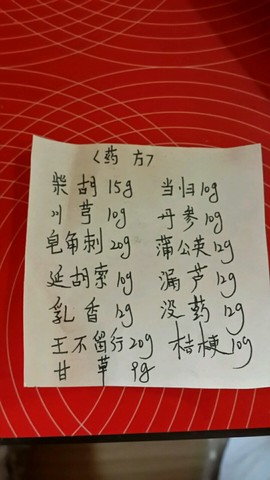 〈药 方〉
柴胡 15g 当归 10g
川芎 10g 丹参 10g
皂角刺 20g 蒲公英 12g
延胡索 10g 漏芦 12g
乳香 12g 没药 12g
王不留行 20g 桔梗 10g
甘草 9g